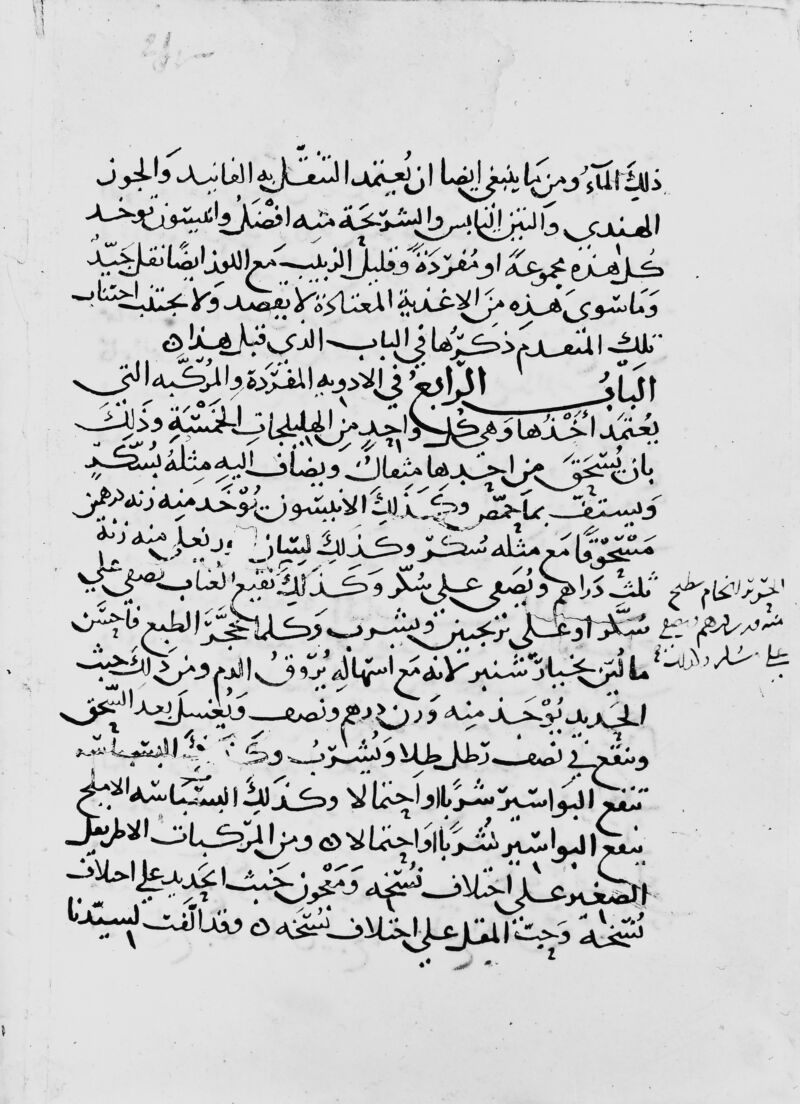 ذلك المآء ومن ما ينبغي ايضا ان يُعتمد التنقّل به الفانيد والجوز
الهندي والتين اليابس والشريحة منه افضل وانيسون توخد
كل هذه مجموعةً او مُفرَدَةً وقليل الزبيب مع اللوز ايضًا نقل جيّدٌ
وَمَا سوى هذه مِنَ الاغذية المعتادة لا يقصد ولا يجتنب اجتناب
تلك المتقدم ذكرُها في الباب الذي قبل هذا ن
البَابُ الرّابع في الادويه المفرَدة والمُركّبه التي
يُعتمَد أخذُها وهي كُل واحدٍ مِن الهليلجات الخَمْسَةِ وذلك
بان يُسْحَقَ من احدها مثقال ويضاف اليه مثلهُ سُكّرٍ
ويستفّ بمآ حمّص وكَذَلِكَ الانيسون يُؤخَد منه زنه درهمين
مَسْحُوقًا مَع مثله سُكّر وكذلك لسان ويغلى منه زنة
ثلث دَراهم ويُصَفى على سُكّر وَكَذلِكَ نقيع العُناب يُصفى على
سُكّر او على ترنجبين ويشرب وكلما تحجَّرَ الطبع فاحسَن
ما ليّن بخيار شنبر لانه مَع اسهاله يُرَوّقُ الدم ومن ذَلِكَ خبث
الحَديد يُؤخَذ منه وَزن درهم ونصف وَيُغسل بعد السَّحق
وينقع في نصف رَطل طِلا ويُشرَبُ وكذلك البسباسه
تنفع البوَاسيرَ شربًا او احتمالا وكذلكَ البسباسَه الاملج
ينفع البواسير شُربًا اوَ احتمالا ن ومن المرَكبات الاطريفل
الصَغير على اختلاف نُسَخه وَمَعجون خبث الحَديد على اختلاف
نُسَخه وَحبّ المقل على اختلاف نُسَخه ن وقد الّفت لسَيّدنا
الحرير الخام يطبخ
منه قدر درهم ويصفى
على سكر وكذلك